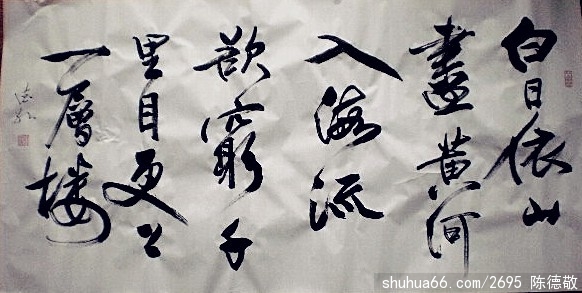 白日依山
盡黄河
入海流
欲窮千
里目更上
一層楼
shuhua66.com/2695 陈德敬